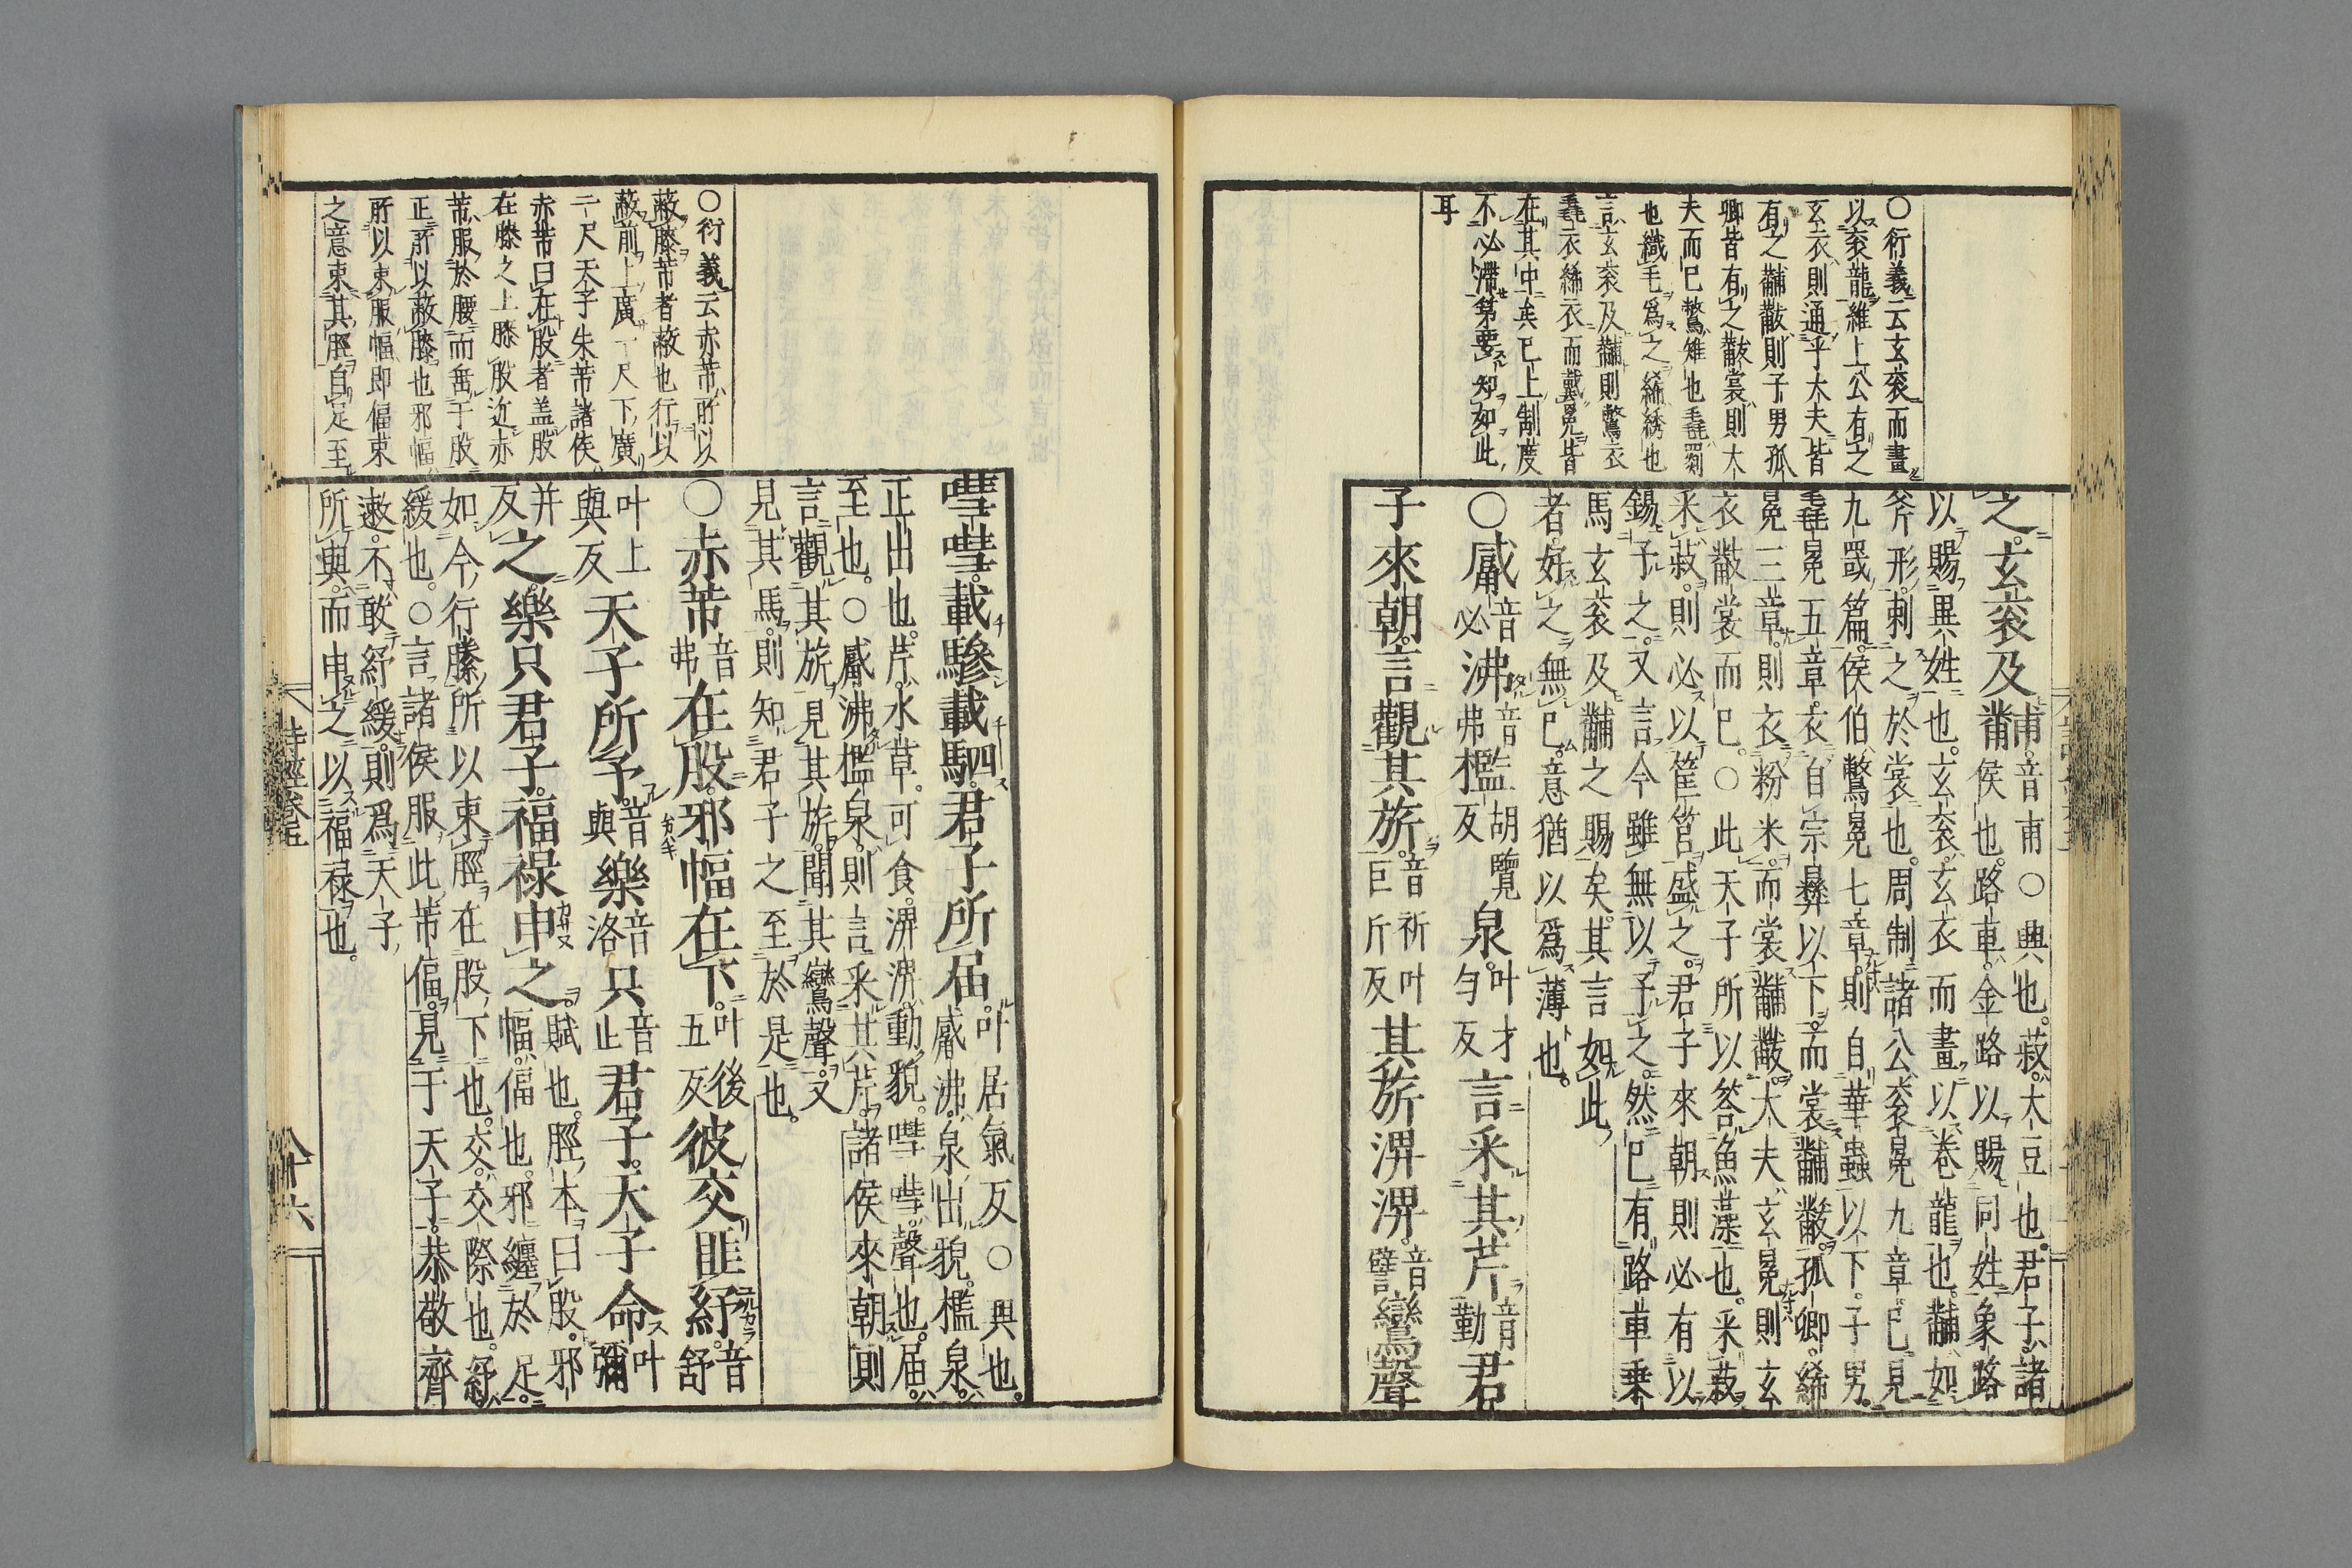 ○衍義云玄衮而畫
以衮龍維上公有之
玄衣則通乎大夫皆
有之黼黻則子男孤
卿皆有之黻裳則大
夫而已鷩雉也毳罽
也織毛爲之絺綉也
言玄衮及黼則鷩衣
毳衣絺衣而戴冕皆
在其中矣已上制度
不必滯第要知如此
耳
之玄衮及黼音甫○興也菽大豆也君子諸
侯也路車金路以賜同姓象路
以賜異姓也玄衮玄衣而畫以卷龍也黼如
斧形刺之於裳也周制諸公衮冕九章已見
九罭篇侯伯鷩冕七章則自華蟲以下子男
毳冕五章衣自宗彝以下而裳黼黻孤卿絺
冕三章則衣粉米而裳黼黻大夫玄冕則玄
衣黻裳而已○此天子所以答魚藻也采菽
采菽則必以筐筥盛之君子來朝則必有以
錫予之又言今雖無以予之然已有路車乗
馬玄衮及黼之賜矣其言如此
者好之無已意猶以爲薄也
○觱音必沸音弗檻胡覽反泉叶才勻反言采其芹音勤君
子來朝言觀其旂音祈叶巨斤反其旂淠淠音譬鸞聲
嘒嘒載驂載駟君子所届叶居氣反○興也
觱沸泉出貌檻泉
正出也芹水草可食淠淠動貌嘒嘒聲也届
至也○觱沸檻泉則言采其芹諸侯來朝則
言觀其旂見其旂聞其鸞聲又
見其馬則知君子之至於是也
○赤芾音弗在股邪幅在下叶後五反彼交匪紓音舒
叶上與反天子所予音與樂音洛只音止君子天子命叶彌
并反之樂只君子福祿申之賦也脛本曰股邪
幅偪也邪纏於足
如今行縢所以束脛在股下也交交際也紓
緩也○言諸侯服此芾偪見于天子恭敬齊
遬不敢紓緩則爲天子
所與而申之以福祿也
○衍義云赤芾所以
蔽膝芾者蔽也行以
蔽前上廣一尺下廣
二尺天子朱芾諸侯
赤芾曰在股者盖股
在膝之上膝股近赤
芾服於腰而垂于股
正所以蔽膝也邪幅
所以束服幅即偪束
之意束其脛自足至
詩經卷五
八十六